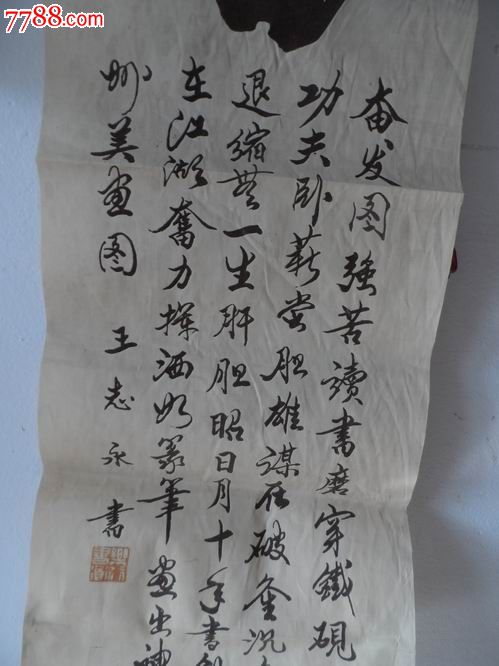 7788.com
奋发图强苦读书磨穿鐵硯
功夫卧薪尝胆雄谋在破釜沉
退缩无一生肝胆昭日月十年书剑
在江湖奮力挥洒如篆筆画出神
妙美画图
王志永書